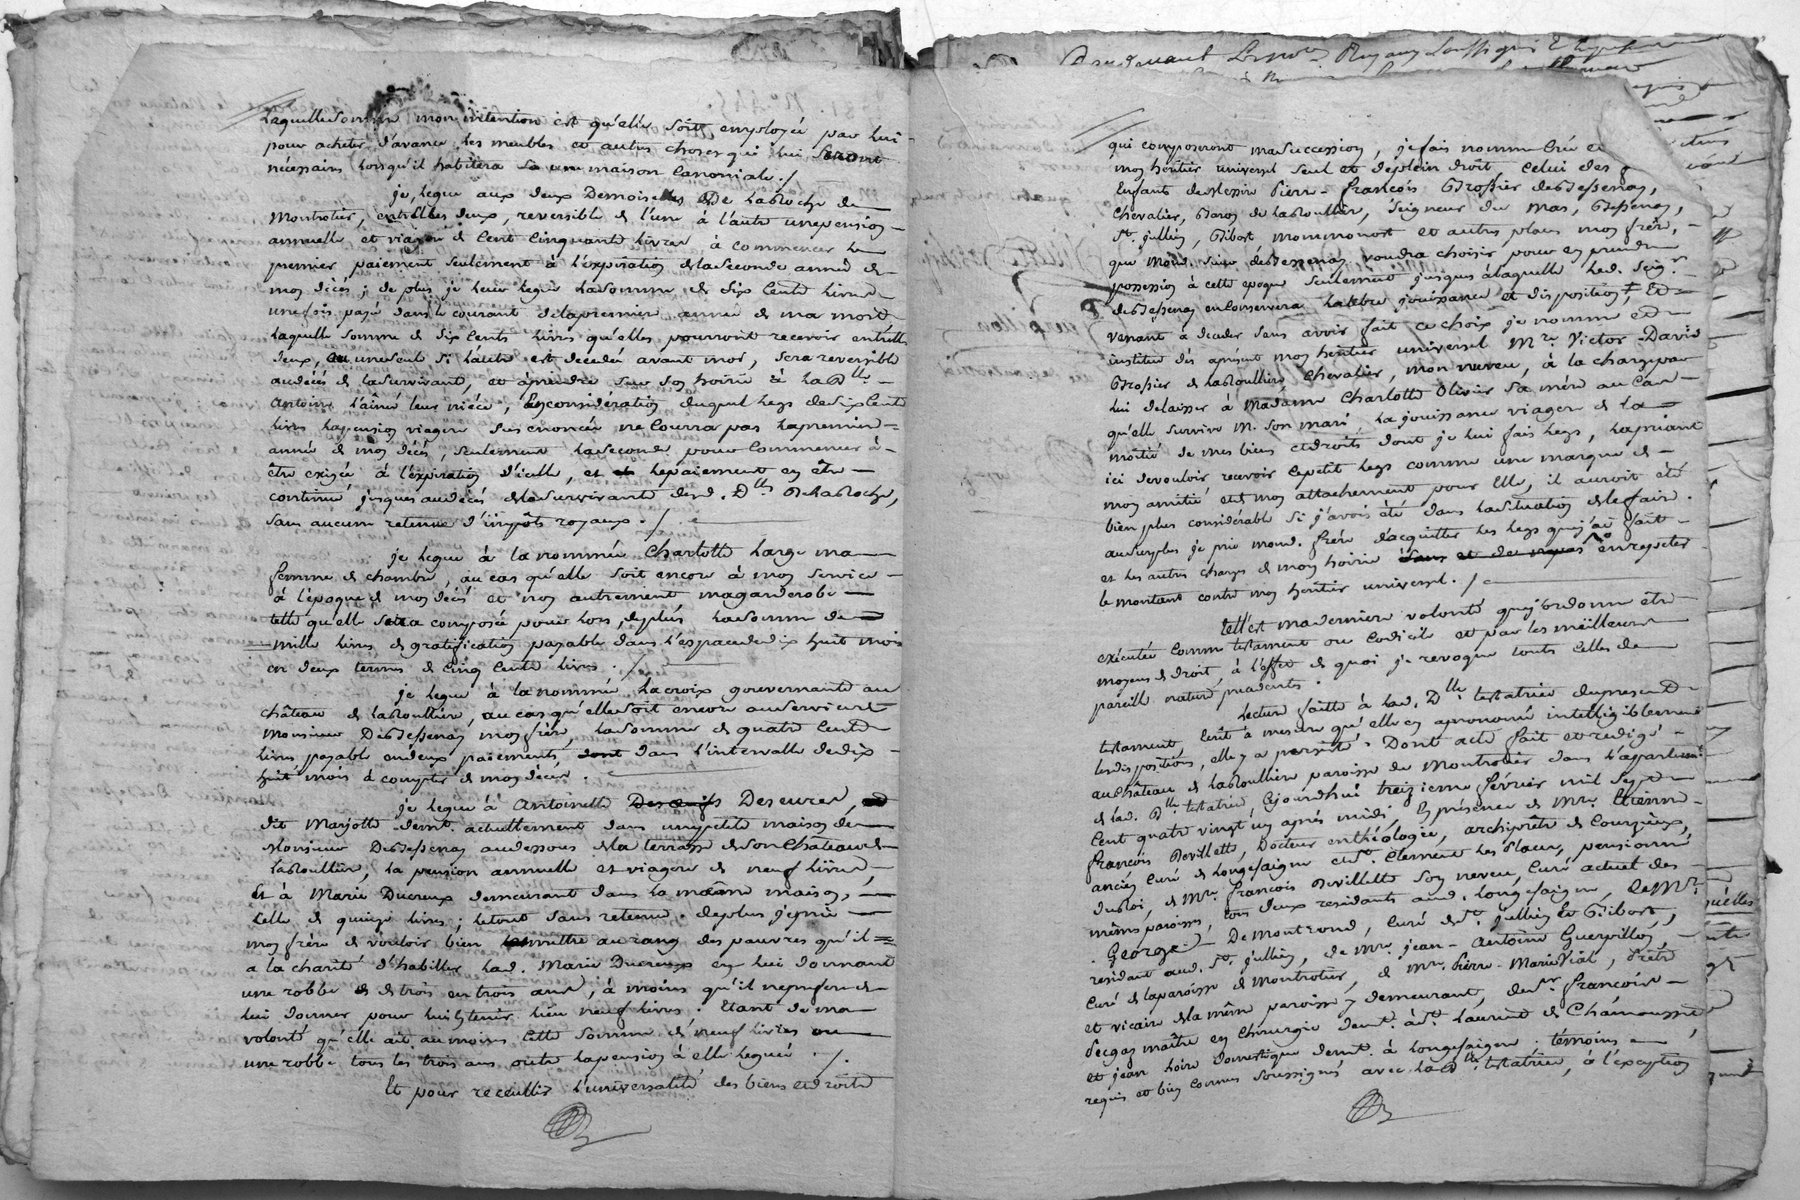 Laquelle somme mon intention est qu'elle soit employée par lui
pour acheter d'avance les meubles et autres choses qui lui seront
nécessaires lorsqu'il habitera sa une maison Canoniale ./
je legue aux deux Demoiselles De LaRoche de
Montrotier, entr'elles deux, reversible de l'une à l'autre une pension
annuelle et viagere de Cent Cinquante livres à commencer le
premier paiement seulement à l'expiration de la seconde année de
mon décès ; de plus je leur legue la somme de six Cents livres
une fois payé dans le courant de la premiere année de ma mort
laquelle somme de six Cents livres qu'elles pourront recevoir entr'elles
deux, ou une seule si l'autre est decedée avant moi, sera reversible
au décès de la survivant, et à prendre sur son hoirie à la Dlle
Antoine l'aînée leur niéce, En consideration duquel legs de six Cents
livres la pension viagere sus enoncée ne Courra pas la premiere
année de mon décès, seulement la seconde pour Commencer à
être exigée à l'expiration d'icelle, et le paiement en être
continué jusques au décès de la survivante desd. Dlles De LaRoche,
sans aucune retenue d'impôts royaux ./
je legue à la nommée Charlotte Large ma
femme de chambre, au cas qu'elle soit encore à mon service
à l'époque de mon décès et non autrement ma garde robe
telle qu'elle sera composée pour lors, de plus la somme de
mille livres de gratification payable dans l'espace de dix huit mois
en deux termes de Cinq Cents livres ./
je legue à la nommée Lacroix gouvernante au
château de LaRoullière, au cas qu'elle soit encore au service de
Monsieur DeBessenay mon frère, la somme de quatre Cents
livres payable en deux paiements, dont dans l'intervalle de dix
huit mois à compter de mon décès .
je legue à Antoinette Deseures
dit Marjotte demt. actuellement dans une petite maison de
Monsieur DeBessenay au dessous de la terrasse de son Château de
LaRoullière, la pension annuelle et viagere de neuf livres,
Et à Marie Ducreux demeurant dans la même maison,
Celle de quinze livres ; le tout sans retenue. de plus je prie
mon frère de vouloir bien mettre au rang des pauvres qu'il
a la charité d'habiller lad. Marie Ducreux en lui donnant
une robbe de trois en trois ans, à moins qu'il ne préfere de
lui donner pour lui en tenir lieu neuf livres. Etant de ma
volonté qu'elle ait au moins Cette somme de neuf livres ou
une robbe tous les trois ans outre la pension à elle leguée ./.
Et pour recueillir l'universalité des biens et droits
qui composeront ma succession, je fais nomme Crée et
mon heritier universel seul et de plein droit Celui des
Enfants de Messire Pierre-François Brossier deBessenay,
Chevalier, Baron de LaRoullière, Seigneur du Mas, Bessenay,
St. jullien, Bibost, et autres places mon frère,
que mond. sieur deBessenay voudra choisir pour en prendre
possession à cette epoque seulement jusques à laquelle led. Seigr
deBessenay en Conservera la libre jouissance et disposition, Et
venant à deceder sans avoir fait ce choix je nomme et
institue dès àpresent mon heritier universel Mre Victor-David
Brossier de LaRoullière, Chevalier, mon neveu, à la charge par
lui delaisser à Madame Charlotte Olivier sa mère au Cas
qu'elle survive M. son mari, la jouissance viagere de la
moitié de mes biens et droits dont je lui fais legs, la priant
ici de vouloir recevoir Ce petit legs comme une marque de
mon amitié et de mon attachement pour Elle, il auroit été
bien plus considérable si j'avois été dans la situation de le faire.
au surplus je prie mond. frère d'acquitter les legs que j'ai fait
et les autres charges de mon hoirie en rejetter
le montant contre mon heritier universel ./
telle est ma derniere volonté que j'ordonne être
exécutée Comme testament ou codicile et par les meilleurs
moyens de droit, à l'effet de quoi je revoque touts Celles de
pareille nature precedentes.
Lecture faitte à lad. Dlle testatrice du present
testament, Ecrit à mesure qu'elle en a prononcé intelligiblement
les dispositions, elle y a persisté. Dont acte fait et redigé
au château de LaRoullière paroisse de Montrotier dans l'apartement
de lad. Dlle testatrice, Cejourd'hui treizieme février mil sept
Cent quatre vingt un après midi, En présence de Mre. Etienne
François Devillette, Docteur en théologie, archiprêtre de Courzieux,
ancien Curé de Longesaigne et St. Clement les Places, pensionné
du Roi, de Mre. François Devillette son neveu, Curé actuel des
mêmes paroisses, tous deux residants aud. Longesaigne, de Mre.
George Demontrond, Curé de St. jullien Et Bibost,
residant aud. St. jullien, de Mre. jean-Antoine Guerpillon
Curé de la paroisse de Montrotier, de Mre. Pierre-Marie Vial, Prêtre
et vicaire de la même paroisse y demeurant, de sr. françois
maître en Chirurgie demt. à St. Laurent de Chamousset
et jean hoire Domestique demt. à Longesaigne. témoins
requis et bien Connus soussignés avec lad. Dlle testatrice, à l'exception